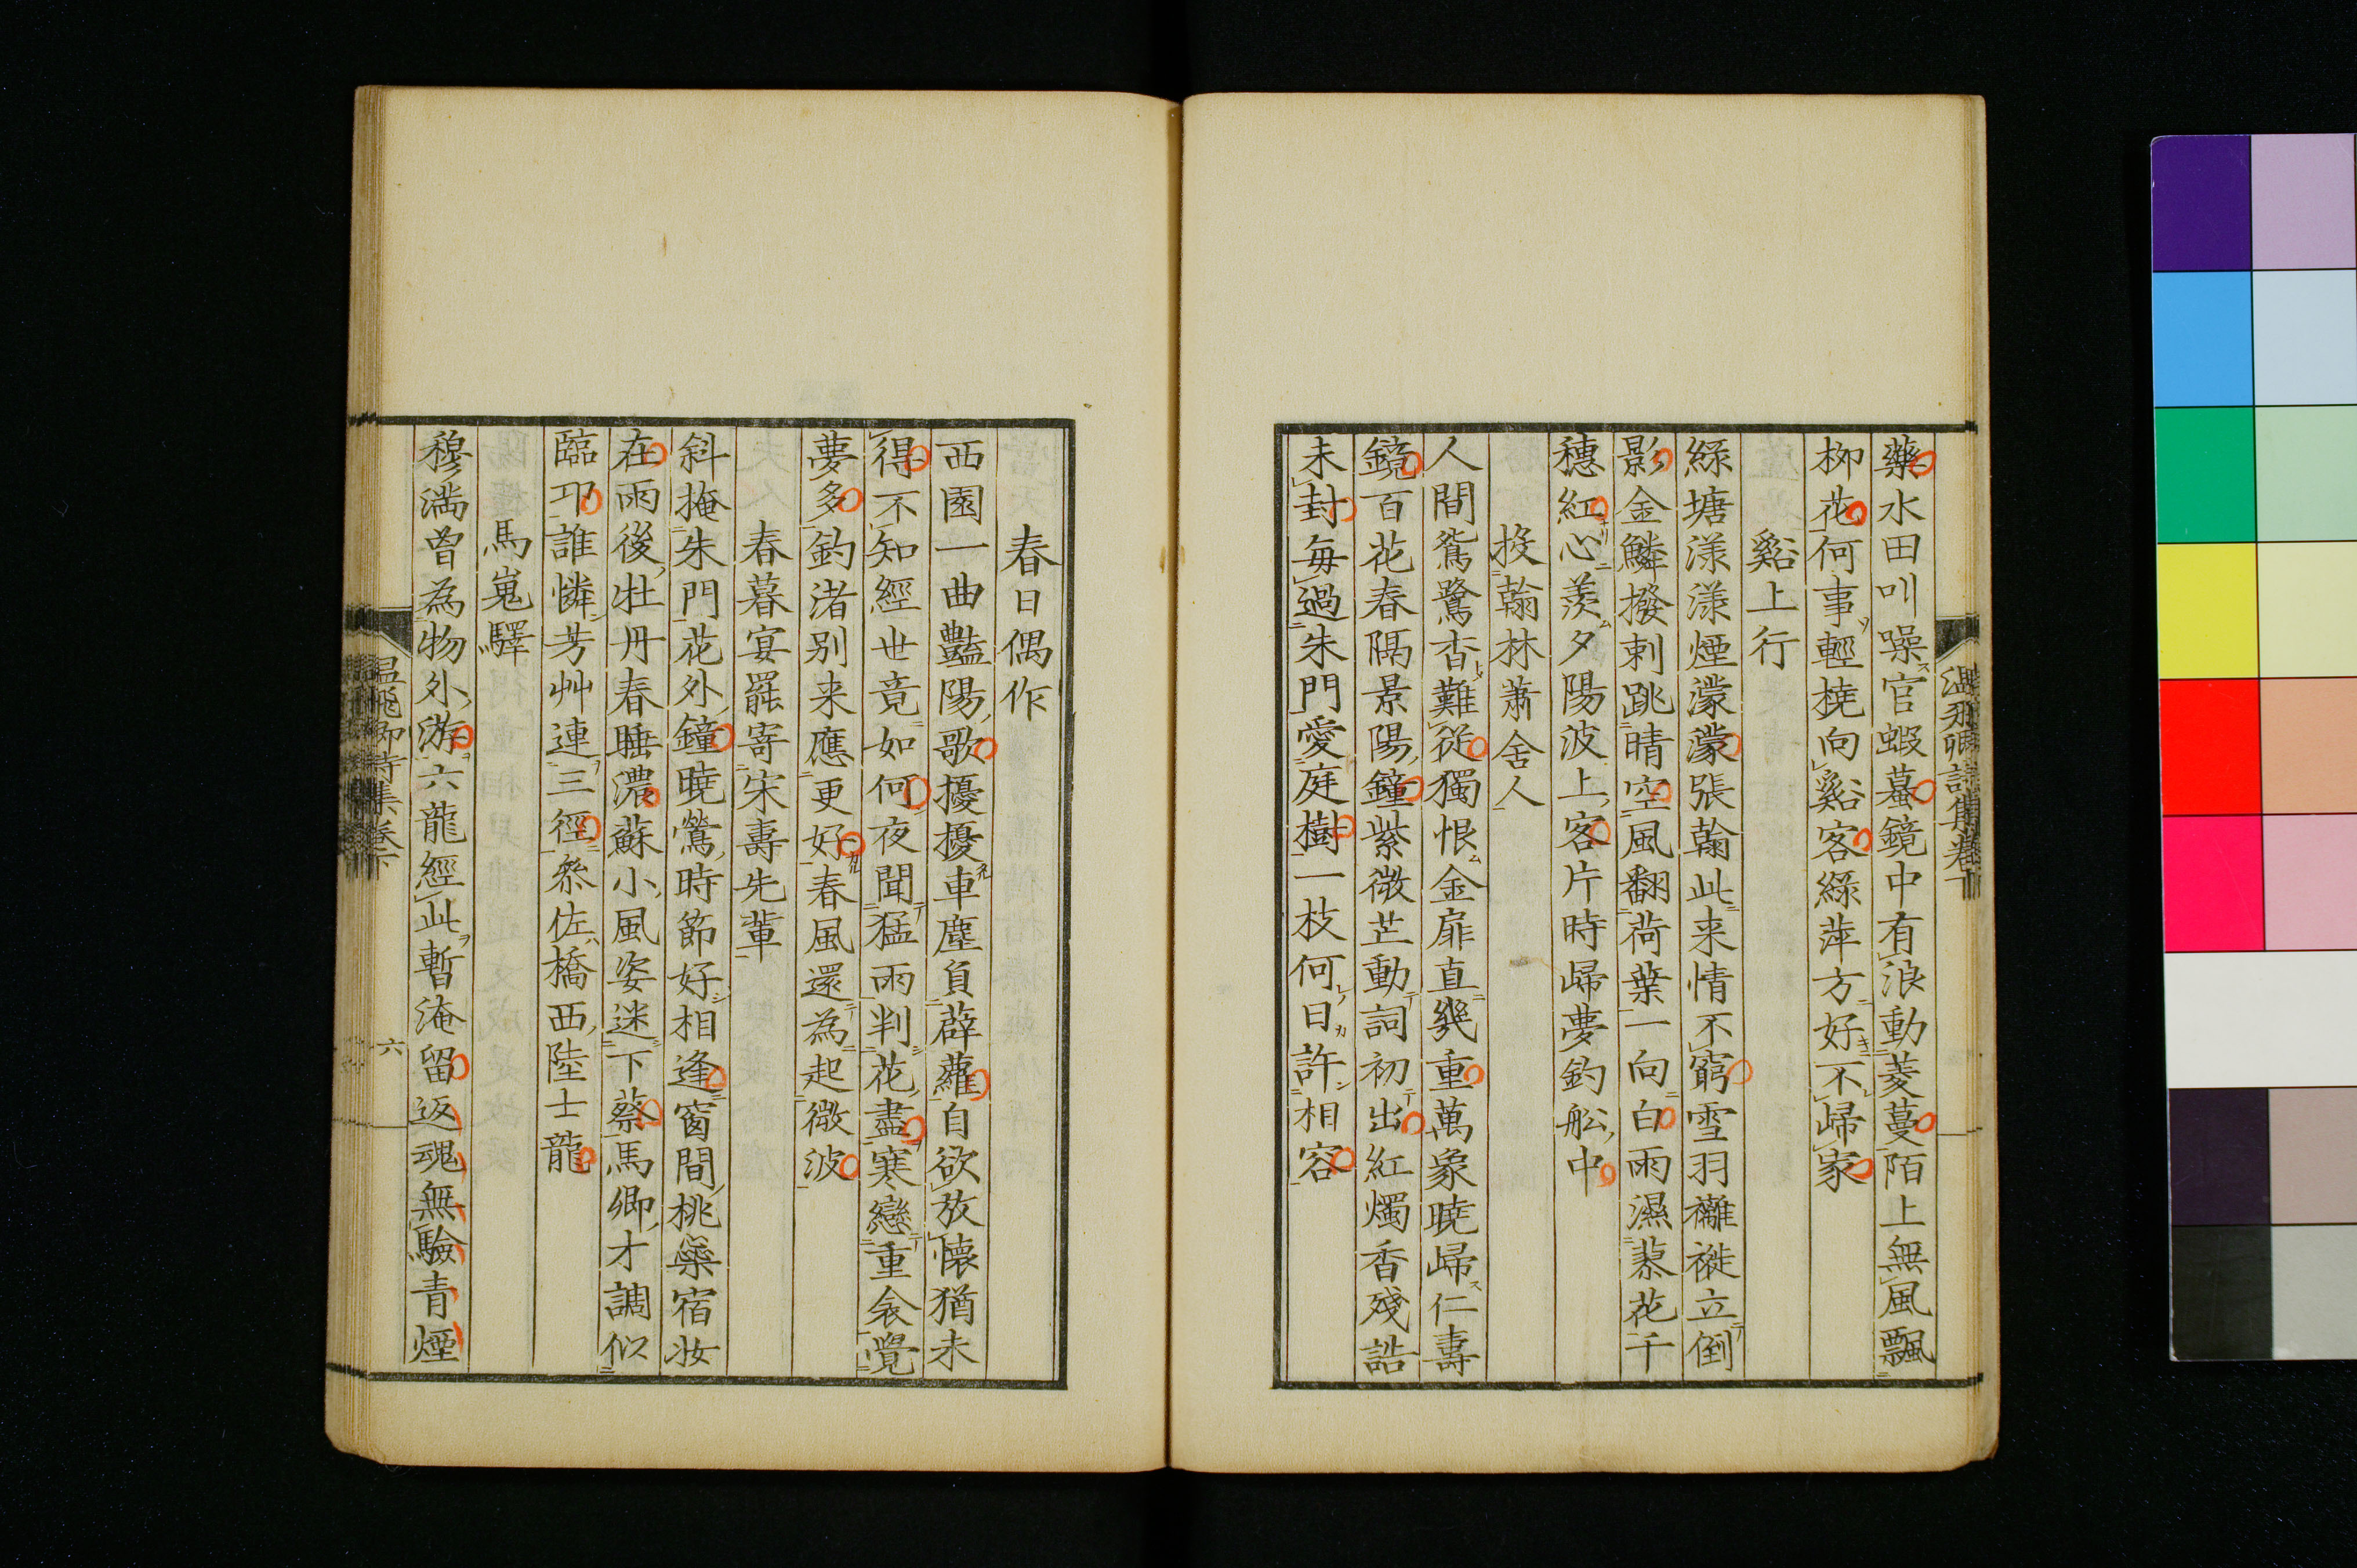 藥水田叫噪官蝦蟇鏡中有浪動菱蔓陌上無風飄
柳花何事輕橈向谿客綠萍方好不歸家
谿上行
綠塘漾漾煙濛濛張翰此来情不窮雪羽襹褷立倒
影金鱗撥剌跳晴空風翻荷葉一向白雨濕蓼花千
穗紅心羨夕陽波上客片時歸夢釣舩中
投翰林蕭舍人
人間鴛鷺杳難從獨恨金扉直幾重萬象曉歸仁壽
鏡百花春隔景陽鐘紫微芒動詞初出紅燭香殘誥
未封每過朱門愛庭樹一枝何日許相容
春日偶作
西園一曲豔陽歌擾擾車塵負薜蘿自欲放懷猶未
得不知經世竟如何夜聞猛雨判花盡寒戀重衾覺
夢多釣渚别来應更好春風還為起微波
春暮宴罷寄宋壽先輩
斜掩朱門花外鐘曉鶯時節好相逢窗間桃蘂宿妝
在雨後牡丹春睡濃蘇小風姿迷下蔡馬卿才調似
臨邛誰憐芳艸連三徑叅佐橋西陸士龍
馬嵬驛
穆滿曾為物外游六龍經此暫淹留返魂無驗青煙
温飛卿詩集卷下
六